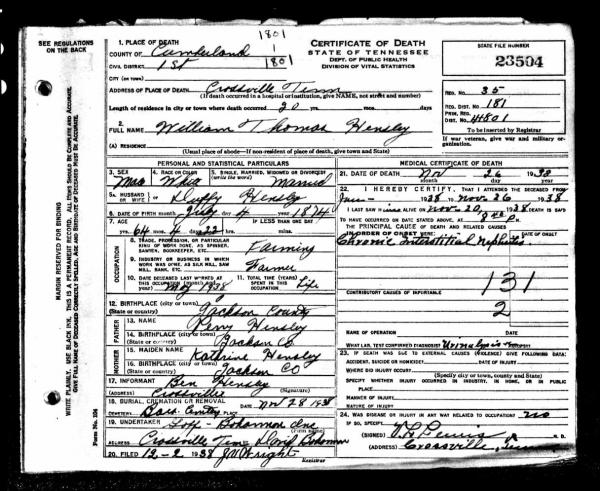 SEE REGULATIONS
ON THE BACK
1801
1
1801
1. PLACE OF DEATH
COUNTY OF Cumberland
CIVIL DISTRICT 1st
CITY (OR TOWN)
ADDRESS OF PLACE OF DEATH Crossville Tenn
(If death occurred in a hospital or institution, give NAME, not street and number)
Length of residence in city or town where death occurred 20 yrs. mos. days
2. FULL NAME William Thomas Hensley
(A) RESIDENCE
(Usual place of abode—If non-resident of place of death, give town and State)
CERTIFICATE OF DEATH
STATE OF TENNESSEE
DEPT. OF PUBLIC HEALTH
DIVISION OF VITAL STATISTICS
STATE FILE NUMBER
23504
REG. NO. 35
REG. DIST. NO. 181
PRIM. REG. DIST. NO. 4801
To be inserted by Registrar
If war veteran, give war and military organization.
PERSONAL AND STATISTICAL PARTICULARS
3. SEX 4. RACE OR COLOR 5. SINGLE, MARRIED, WIDOWED OR DIVORCED
(write the word)
White Married
5A. HUSBAND OR WIFE OF Duffy Hensley
6. DATE OF BIRTH month July day 4 year 1874
7. AGE IF LESS THAN ONE DAY
yrs. 64 mos. 4 days 22 hrs. min.
OCCUPATION
8. TRADE, PROFESSION, OR PARTICULAR
KIND OF WORK DONE, AS SPINNER,
SAWYER, BOOKKEEPER, ETC. Farming
9. INDUSTRY OR BUSINESS IN WHICH
WORK WAS DONE, AS SILK MILL, SAW
MILL, BANK, ETC. Farmer
10. DATE DECEASED LAST WORKED AT
THIS OCCUPATION (month and year) May 1938
11. TOTAL TIME (YEARS)
SPENT IN THIS
OCCUPATION Life
12. BIRTHPLACE (city or town)
(State or country) Jackson County
FATHER
13. NAME Perry Hensley
14. BIRTHPLACE (city or town)
(State or country) Jackson Co
MOTHER
15. MAIDEN NAME Kathrine Hensley
16. BIRTHPLACE (city or town)
(State or country) Jackson Co
17. INFORMANT Ben Hensley
(Signature)
ADDRESS Crossville
18. BURIAL, CREMATION OR REMOVAL
DATE Nov 28 1938
CEMETERY PLACE
19. UNDERTAKER Bohannon Inc
(Firm name)
ADDRESS Crossville Tenn David Bohannon
20. FILED 12-2 1938 J W Wright
Registrar
MEDICAL CERTIFICATE OF DEATH
21. DATE OF DEATH Nov 26 1938
22. I HEREBY CERTIFY, THAT I ATTENDED THE DECEASED FROM
1938 TO Nov 26 1938
I LAST SAW HIM ALIVE ON Nov 20 1938 DEATH IS SAID
TO HAVE OCCURRED ON DATE STATED ABOVE, AT 8 P.
THE PRINCIPAL CAUSE OF DEATH AND RELATED CAUSES
IN ORDER OF ONSET WERE DATE OF ONSET
Chronic Interstitial Nephritis
131
CONTRIBUTORY CAUSES OF IMPORTANCE
2
NAME OF OPERATION DATE
WHAT LAB. TEST CONFIRMED DIAGNOSIS? Urinalysis
23. IF DEATH WAS DUE TO EXTERNAL CAUSES (VIOLENCE) GIVE FOLLOWING DATA:
ACCIDENT, SUICIDE OR HOMICIDE DATE
WHERE DID INJURY OCCUR
(Specify city, town, county and State)
SPECIFY WHETHER INJURY OCCURRED IN INDUSTRY, IN HOME, OR IN PUBLIC PLACE
MANNER OF INJURY
NATURE OF INJURY
24. WAS DISEASE OR INJURY IN ANY WAY RELATED TO OCCUPATION? no
IF SO, SPECIFY
(SIGNED) M. D.
(ADDRESS) Crossville, Tenn
MARGIN RESERVED FOR BINDING
Form No. 104